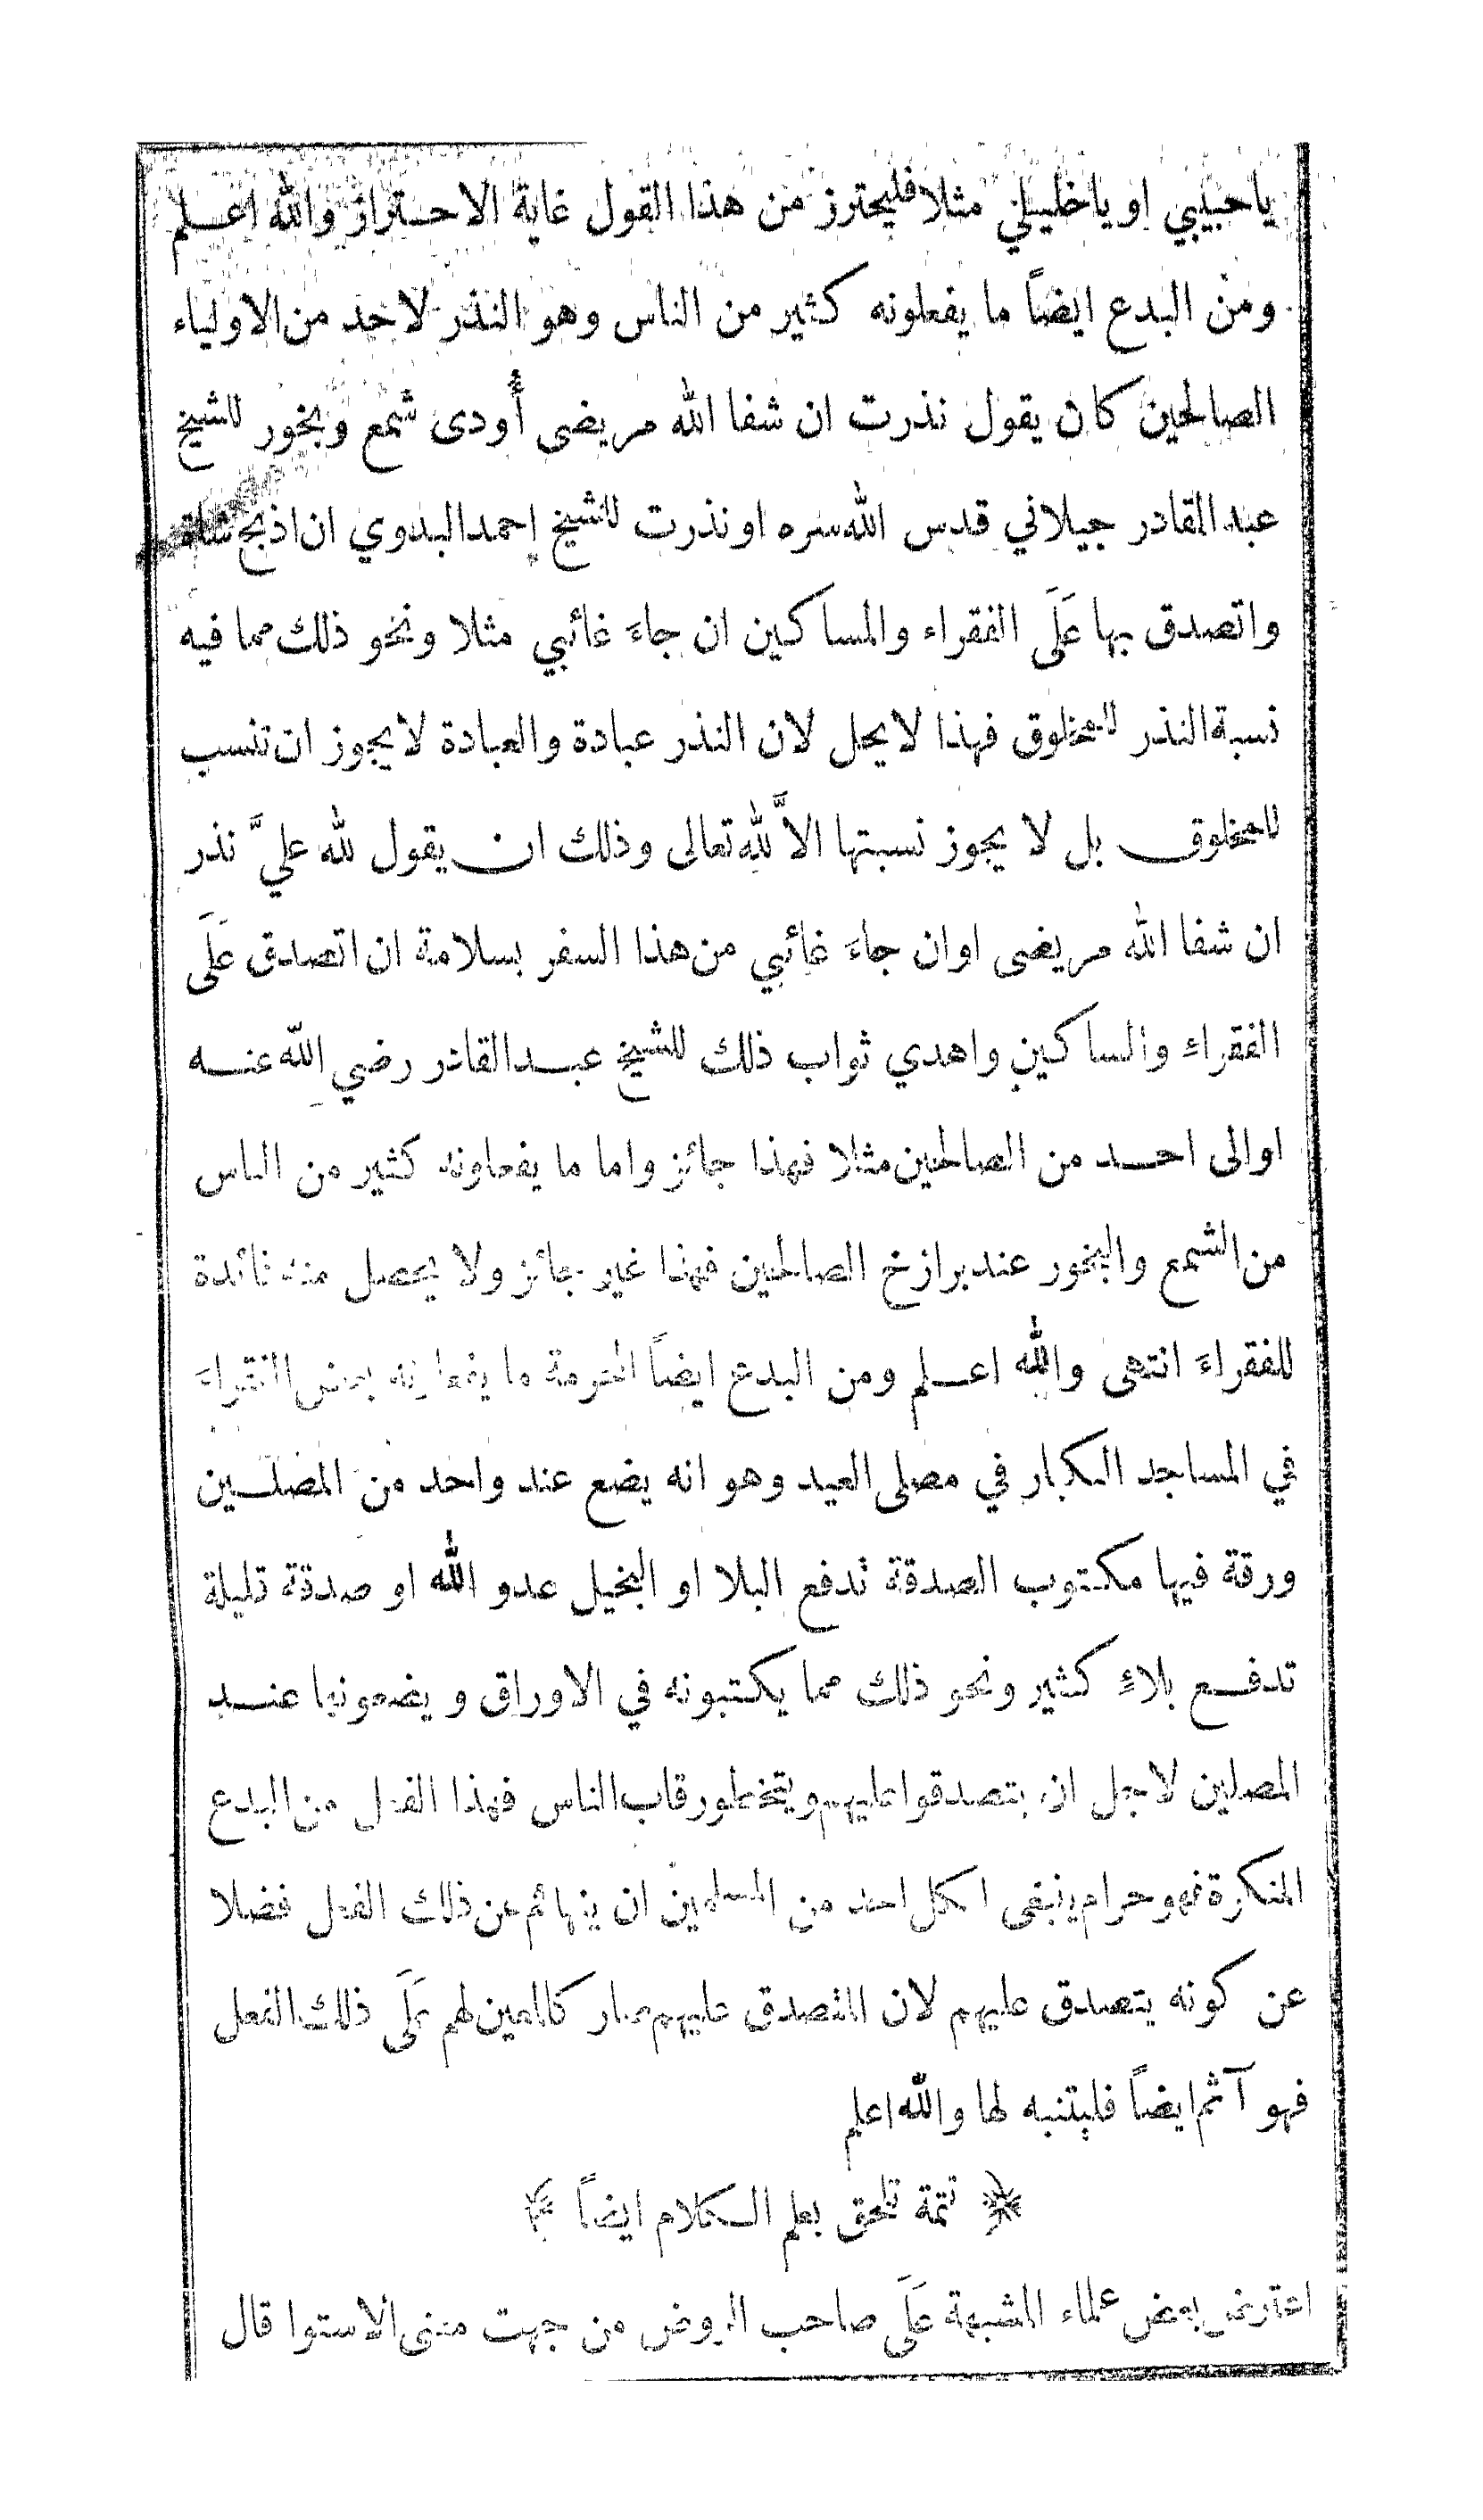 ياحبيبي او ياخليلي مثلا فليحترز من هذا القول غاية الاحتراز والله اعلم
ومن البدع ايضاً ما يفعلونه كثير من الناس وهو النذر لاحد من الاولياء
الصالحين كان يقول نذرت ان شفا الله مريضى أودى شمع وبخور للشيخ
عبدالقادر جيلاني قدس الله سره او نذرت للشيخ احمد البدوي ان اذبح شاة
واتصدق بها عَلَى الفقراء والمساكين ان جاءَ غائبي مثلا ونحو ذلك مما فيه
نسبة النذر للمخلوق فهذا لايحل لان النذر عبادة والعبادة لايجوز ان تنسب
للمخلوق بل لا يجوز نسبتها الاَّ للهِ تعالى وذلك ان يقول لله عليَّ نذر
ان شفا الله مريضى اوان جاءَ غائبي من هذا السفر بسلامة ان اتصدق عَلَى
الفقراءِ والمساكين واهدي ثواب ذلك للشيخ عبدالقادر رضي الله عنه
اوالى احد من الصالحين مثلا فهذا جائز واما ما يفعلونه كثير من الناس
من الشمع والبخور عند برازخ الصالحين فهذا غير جائز ولا يحصل منه فائدة
للفقراءَ انتهى والله اعلم ومن البدع ايضاً المحرمة ما يفعلونه بعض الفقراءَ
في المساجد الكبار في مصلى العيد وهو انه يضع عند واحد من المصلين
ورقة فيها مكتوب الصدقة تدفع البلا او البخيل عدو الله او صدقة قليلة
تدفع بلاءٍ كثير ونحو ذلك مما يكتبونه في الاوراق و يضعونها عند
المصلين لاجل ان يتصدقوا عليهم ويتخطو رقاب الناس فهذا الفعل من البدع
المنكرة فهو حرام ينبغى لكل احد من المسلمين ان ينهاهم عن ذلك الفعل فضلا
عن كونه يتصدق عليهم لان المتصدق عليهم صار كالمعين لهم عَلَى ذلك الفعل
فهو آثم ايضاً فليتنبه لها والله اعلم
تتمة تلحق بعلم الكلام ايضاً
اعترض بعض علماء المشبهة عَلَى صاحب الروض من جهت معنى الاستوا قال